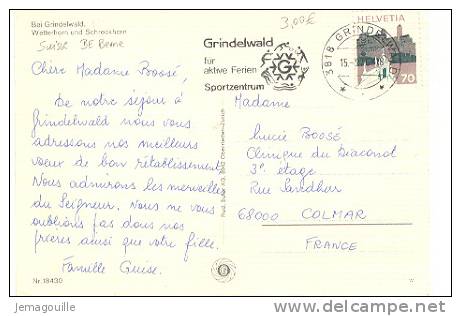 Bei Grindelwald.
Wetterhorn und Schreckhorn
Suisse BE Berne
3,00€
Chère Madame Boosé,
De notre séjour à
Grindelwald nous vous
adressons nos meilleurs
voeux de bon rétablissement
Nous admirons les merveilles
du Seigneur. Nous ne vous
oublions pas dans nos
prières ainsi que votre fille.
Famille Guise.
Nr. 18430
Grindelwald
für
aktive Ferien
Sportzentrum
G
3818 GRINDELWALD
15.
HELVETIA
70
Madame
Lucie Boosé
Clinique du Diaconat
3e étage
Rue Sandherr
68000 COLMAR
FRANCE
Jemagouille
www.delcampe.net